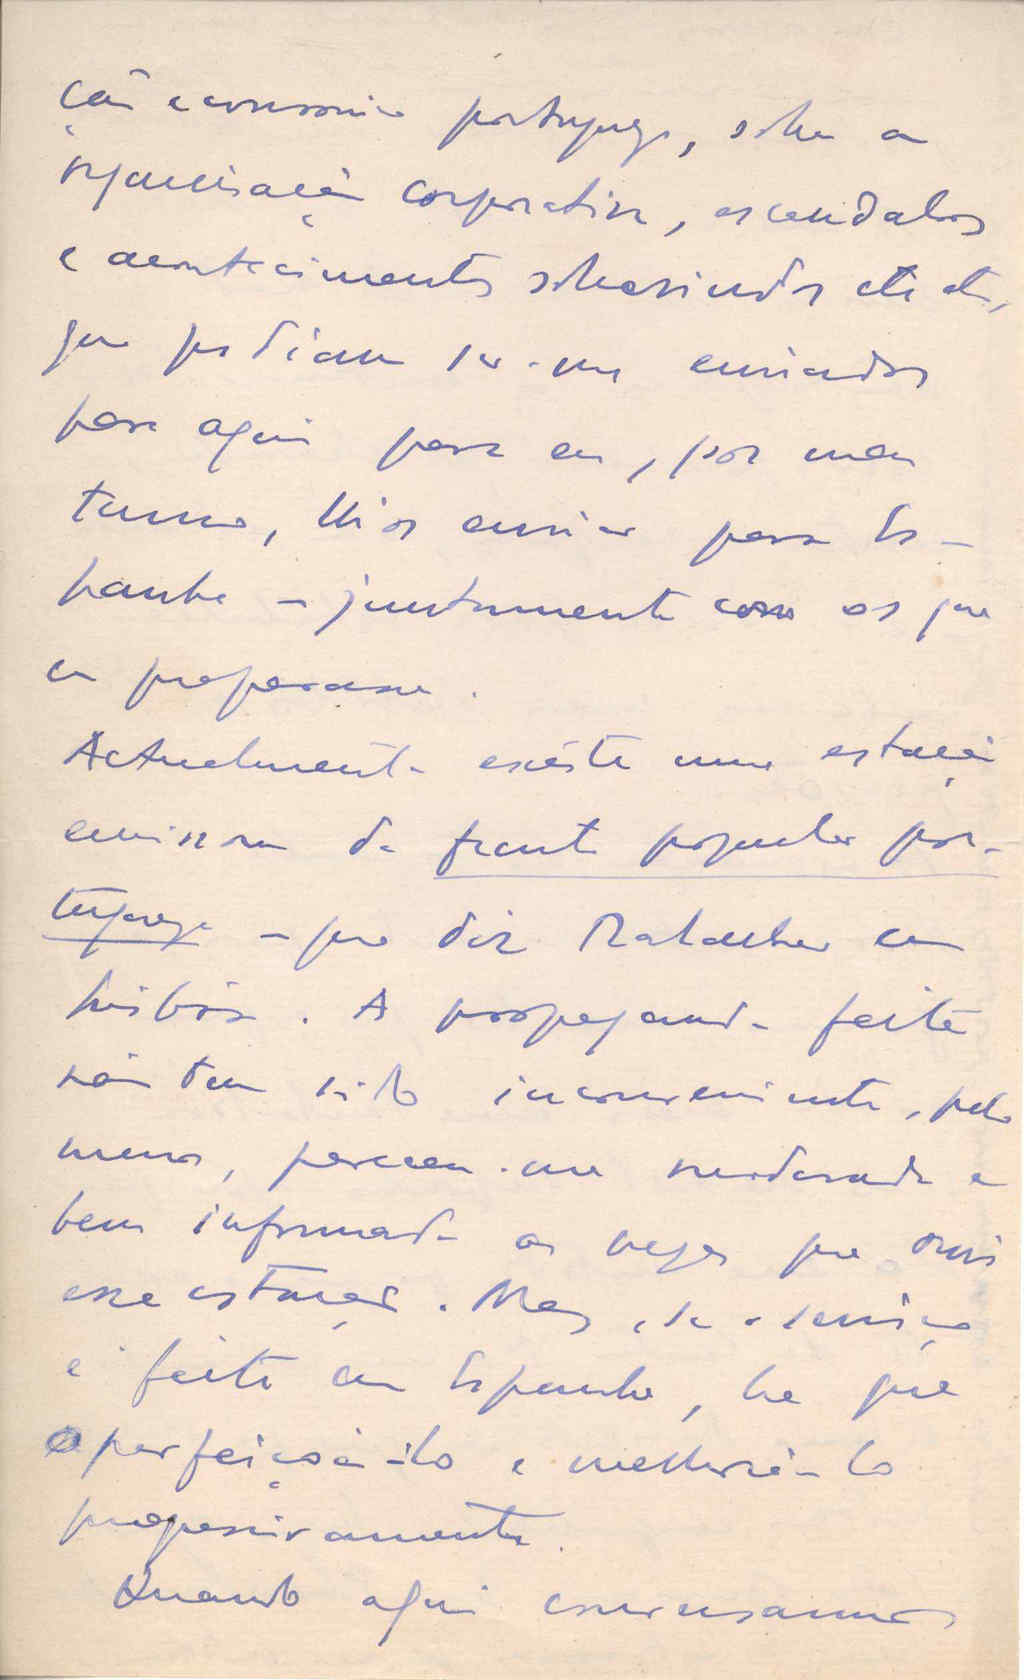 ção economica portuguesa, sobre a
organisação corporativa, escandalos
e acontecimentos sobrevindos etc etc,
que podiam ser-me enviados
para aqui para eu, por meu
turno, lhos enviar para Es-
panha – juntamente com os que
eu preparasse.
Actualmente existe uma estação
emissora da frente popular por-
tugueza – que diz trabalhar em
Lisbôa. A propaganda feita
não tem sido inconveniente, pelo
menos, pareceu-me moderada e
bem informada as vezes que ouvi
essa estação. Mas, se o serviço
é feito em Espanha, ha que
aperfeiçoá-lo e melhorá-lo
progressivamente.
Quando aqui conversamos